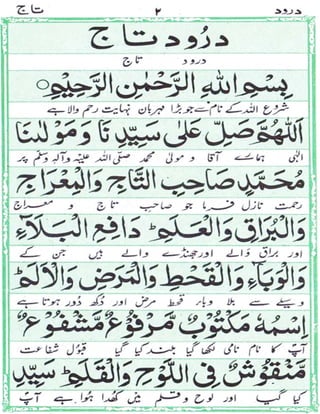 درود ۲ تاج
درود تاج
درود تاج
بِسْمِ اللهِ الرَّحْمٰنِ الرَّحِيْمِ
شروع اللہ کے نام سے جو بڑا مہربان نہایت رحم والا ہے
اَللّٰهُمَّ صَلِّ عَلٰى سَيِّدِنَا وَمَوْلٰنَا
الٰہی ہمارے آقا و مولیٰ محمد صلی اللہ علیہ وآلہ وسلم پر
مُحَمَّدٍ صَاحِبِ التَّاجِ وَالْمِعْرَاجِ
رحمت نازل فرما جو صاحب تاج و معراج
وَالْبُرَاقِ وَالْعَلَمِ ؕ دَافِعِ الْبَلَآءِ
اور براق والے اور جھنڈے والے ہیں جن کے
وَالْوَبَآءِ وَالْقَحْطِ وَالْمَرَضِ وَالْاَلَمِ ؕ
وسیلے سے بلا وباء قحط مرض اور دُکھ دور ہوتا ہے
اِسْمُهٗ مَكْتُوْبٌ مَّرْفُوْعٌ مَّشْفُوْعٌ
آپ کا نام نامی لکھا گیا بلند کیا گیا قبول شفاعت
مَّنْقُوْشٌ فِى اللَّوْحِ وَالْقَلَمِ ؕ سَيِّدِ
کیا گیا اور لوح و قلم میں کھدا ہوا ہے آپ